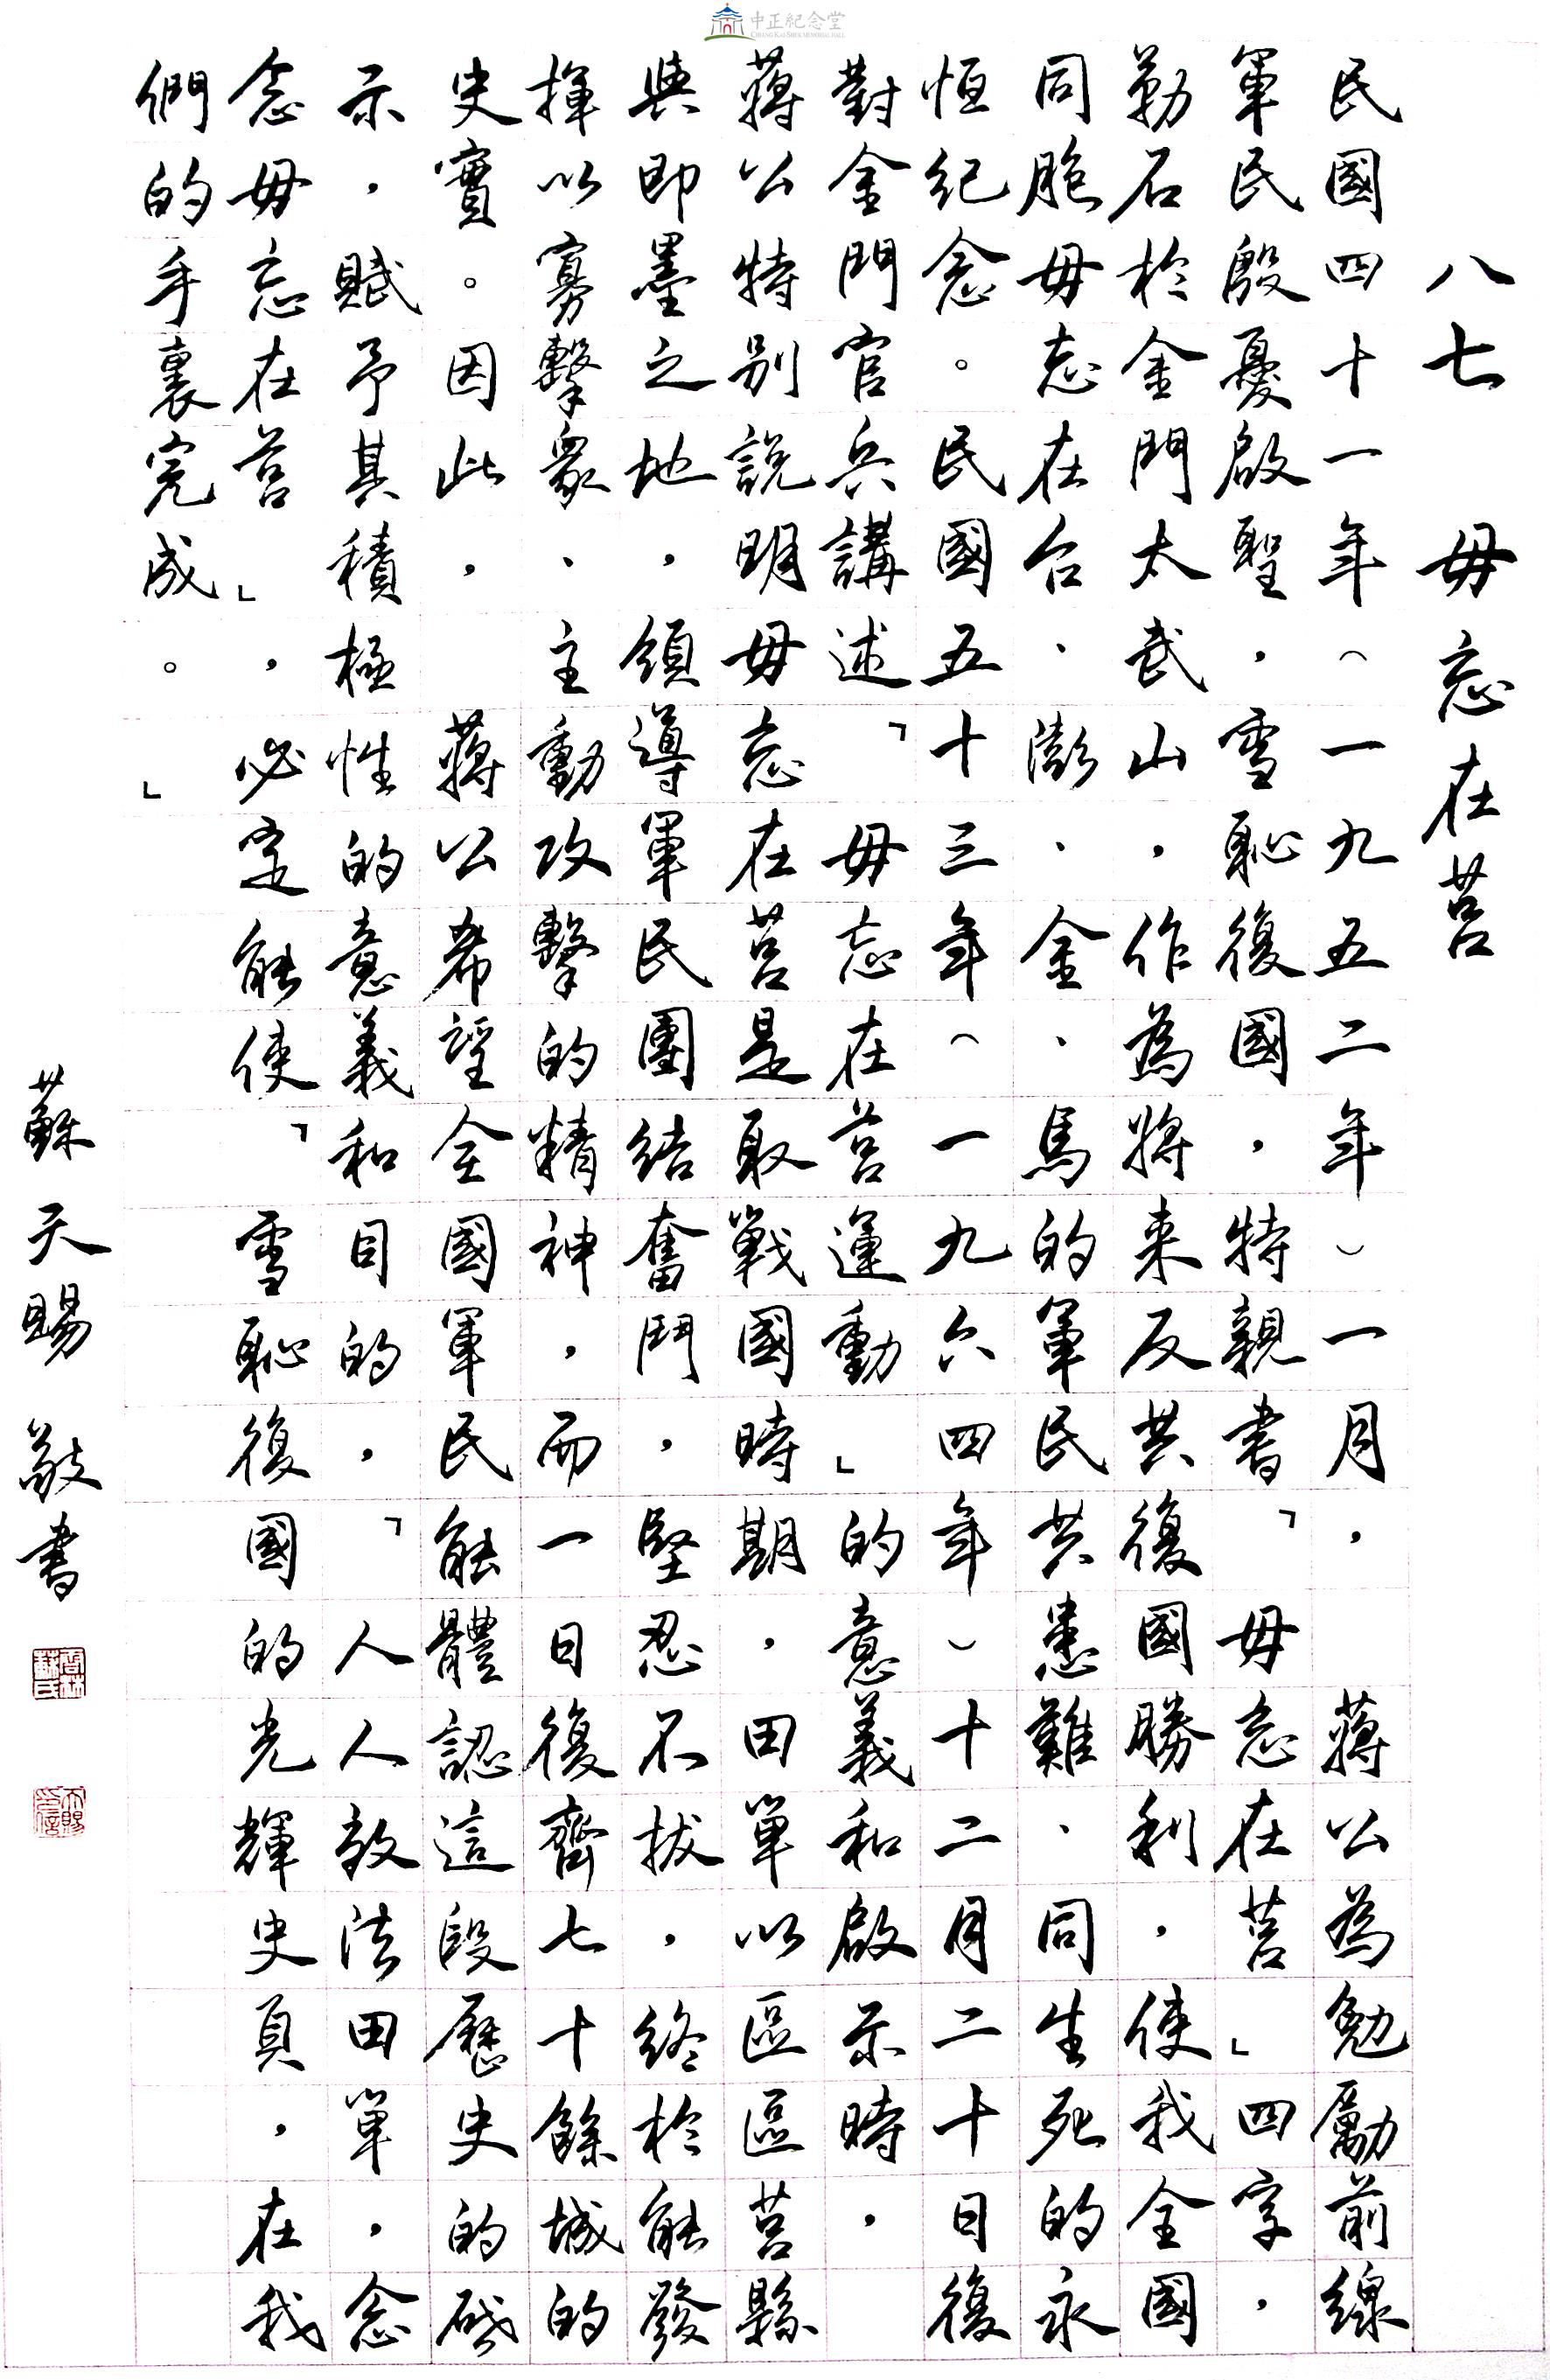 中正紀念堂
CHIANG KAI-SHEK MEMORIAL HALL
八七 毋忘在莒
民國四十一年（一九五二年）一月， 蔣公為勉勵前線
軍民殷憂啟聖，雪恥復國，特親書「毋忘在莒」四字，
勒石於金門太武山，作為將來反共復國勝利，使我全國
同胞毋忘在台、澎、金、馬的軍民共患難、同生死的永
恒紀念。民國五十三年（一九六四年）十二月二十日復
對金門官兵講述「毋忘在莒運動」的意義和啟示時，
蔣公特別說明毋忘在莒是取戰國時期，田單以區區莒縣
與即墨之地，領導軍民團結奮鬥，堅忍不拔，終於能發
揮以寡擊眾、主動攻擊的精神，而一日復齊七十餘城的
史實。因此， 蔣公希望全國軍民能體認這段歷史的啟
示，賦予其積極性的意義和目的，「人人效法田單，念
念毋忘在莒」，必定能使「雪恥復國的光輝史頁，在我
們的手裏完成。」
蘇天賜 敬書